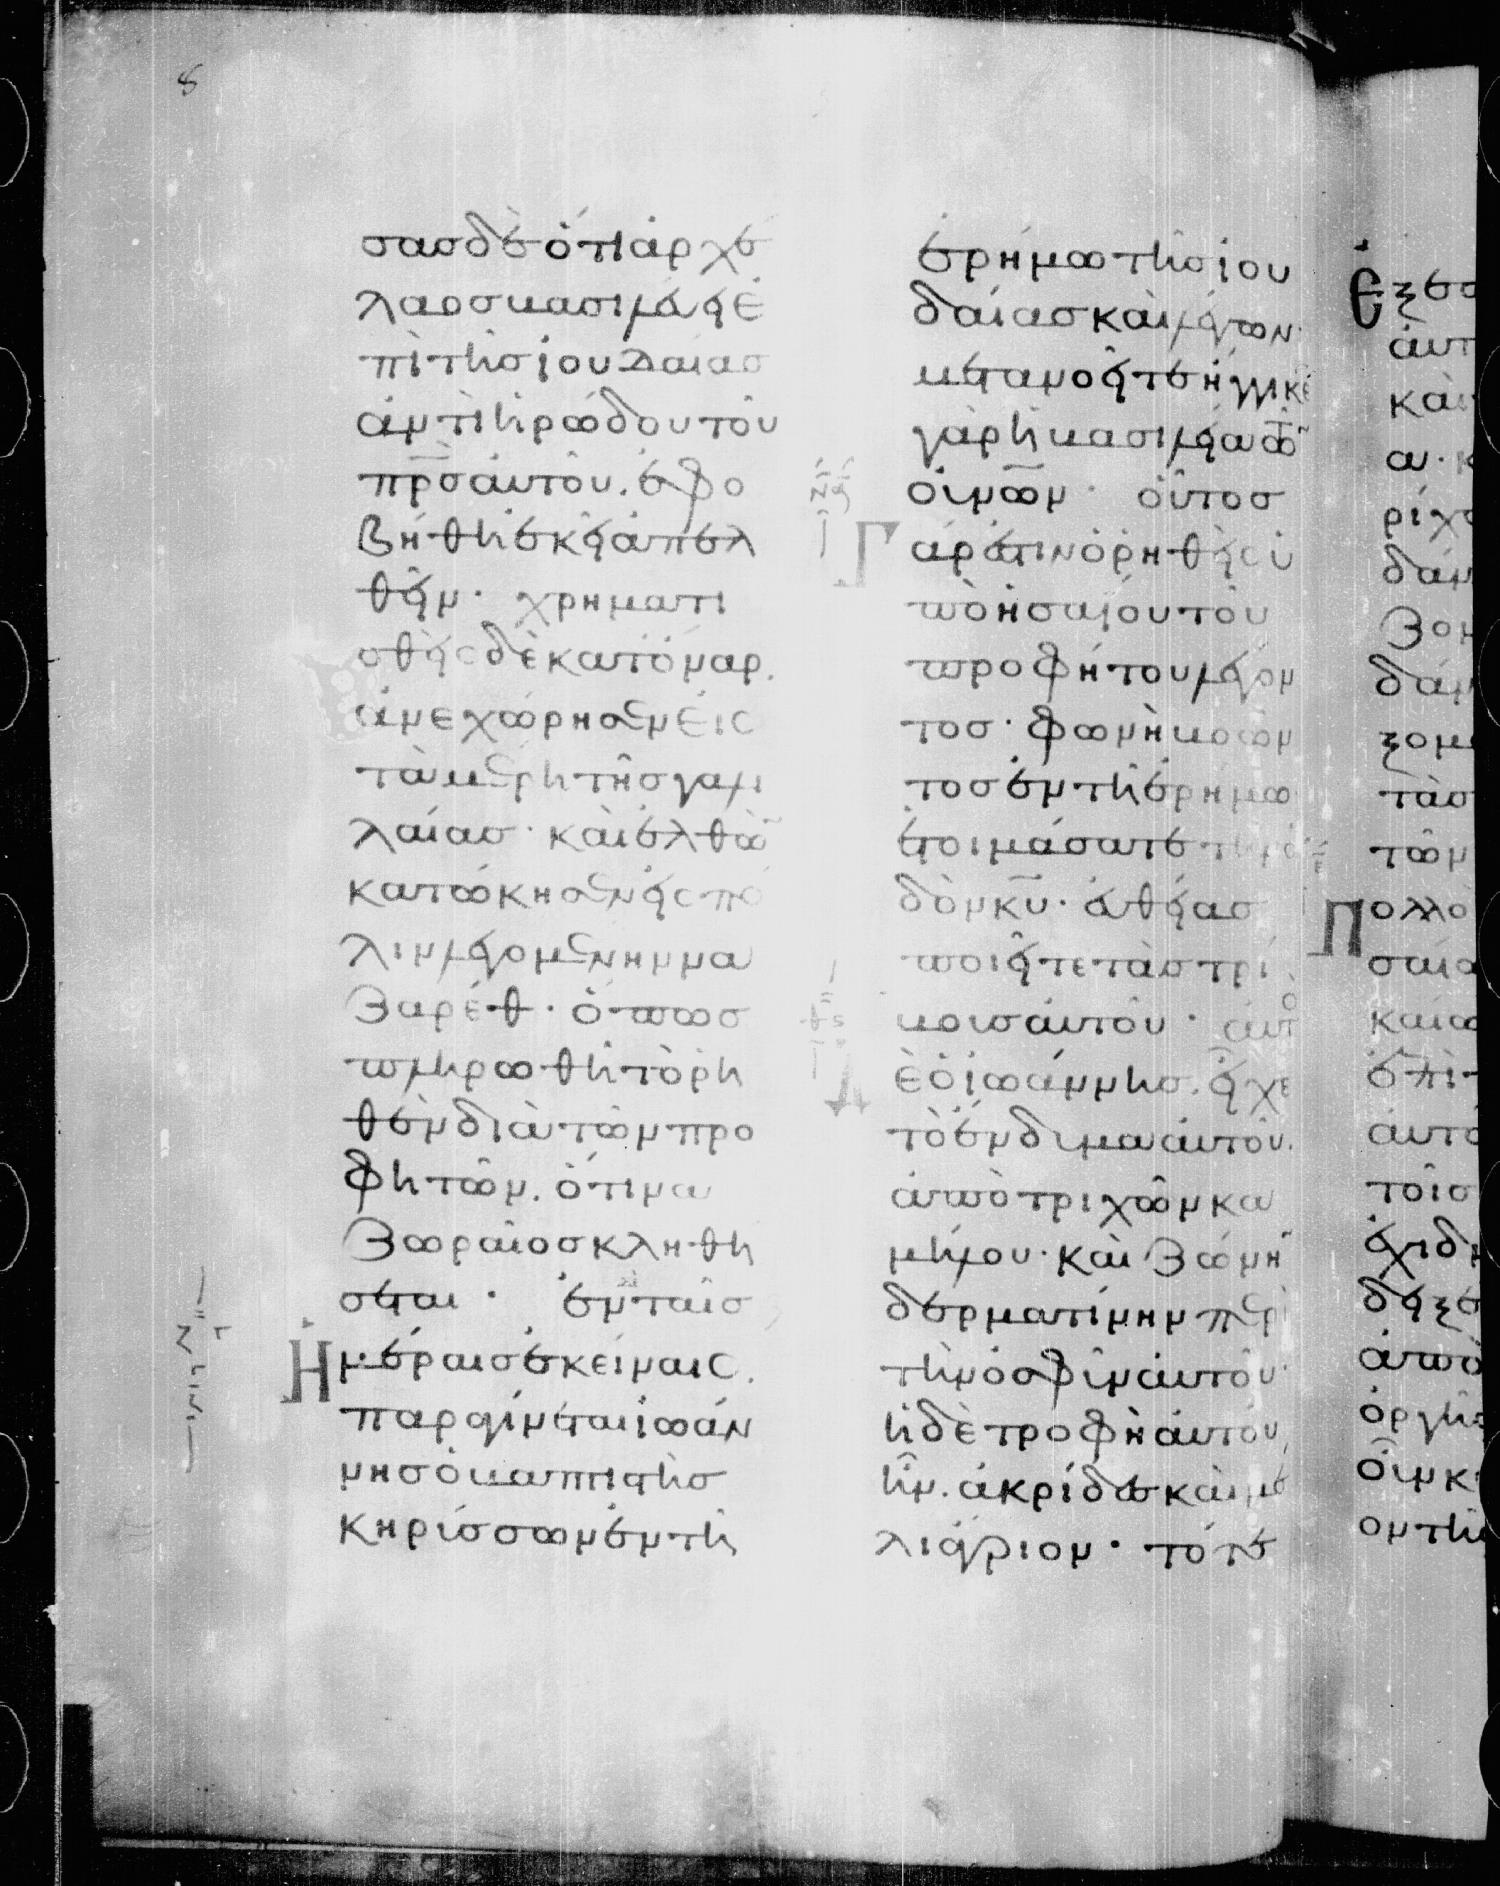 σασ δὲ ὅτι ἀρχέ
λαοσ βασιλεύει ἐ
πὶ τῆσ ἰουδαίασ
ἀντὶ ἡρώδου τοῦ
πρ̅σ αὐτοῦ. ἐφο
βήθη ἐκεῖ ἀπελ
θεῖν· χρηματι
σθεὶς δὲ κατ' ὄναρ.
ἀνεχώρησεν εἰς
τὰ μέρη τῆσ γαλι
λαίασ· καὶ ἐλθὼ̅
κατώκησεν εἰς πό
λιν λεγομένην να
ζαρέθ· ὅπωσ
πληρωθῆ τὸ ῥη
θὲν διὰ τῶν προ
φητῶν. ὅτι να
ζωραῖοσ κληθή
σεται· ἐν ταῖσ
Ἡμέραισ ἐκείναις.
παραγίνεται ἰωάν
νησ ὁ βαπτιστὴσ
κηρίσσων ἐν τῆ
ἐρήμω τῆσ ἰου
δαίασ καὶ λέγων·
μετανοεῖτε ἤγγικε
γὰρ ἡ βασιλεία τῶ̅
οὐ̅νῶν· οὗτοσ
Γάρ ἐστιν ὁ ῥηθεὶς ὑ
πὸ ἡσαΐου τοῦ
προφήτου λέγον
τοσ· φωνὴ βοῶν
τοσ ἐν τῆ ἐρήμω
ἑτοιμάσατε τὴν ὁ
δὸν κ̅υ· εὐθείασ
ποιεῖτε τὰσ τρί
βουσ αὐτοῦ· αὐτὸ
Δὲ ὁ ἰωάννησ. εἶχε
τὸ ἔνδιμα αὐτοῦ.
ἀπὸ τριχῶν κα
μήλου· καὶ ζώνη̅
δερματίνην περὶ
τὴν ὀσφῦν αὐτοῦ·
ἡ δὲ τροφὴ αὐτοῦ
ἦν. ἀκρίδεσ καὶ μέ
λι ἄγριον· τότε
Ἐξεπ
αὐτ
καὶ
α·
ρίχ
δάν
ζον
δάν
ξομ
τὰσ
τῶν
Πολλο
σαίω
καίω
ἐπὶ
αὐτο
τοῖσ
ἐχιδν
δειξε
ἀπὸ
ὀργῆσ
οὖν κ
ον τῆσ